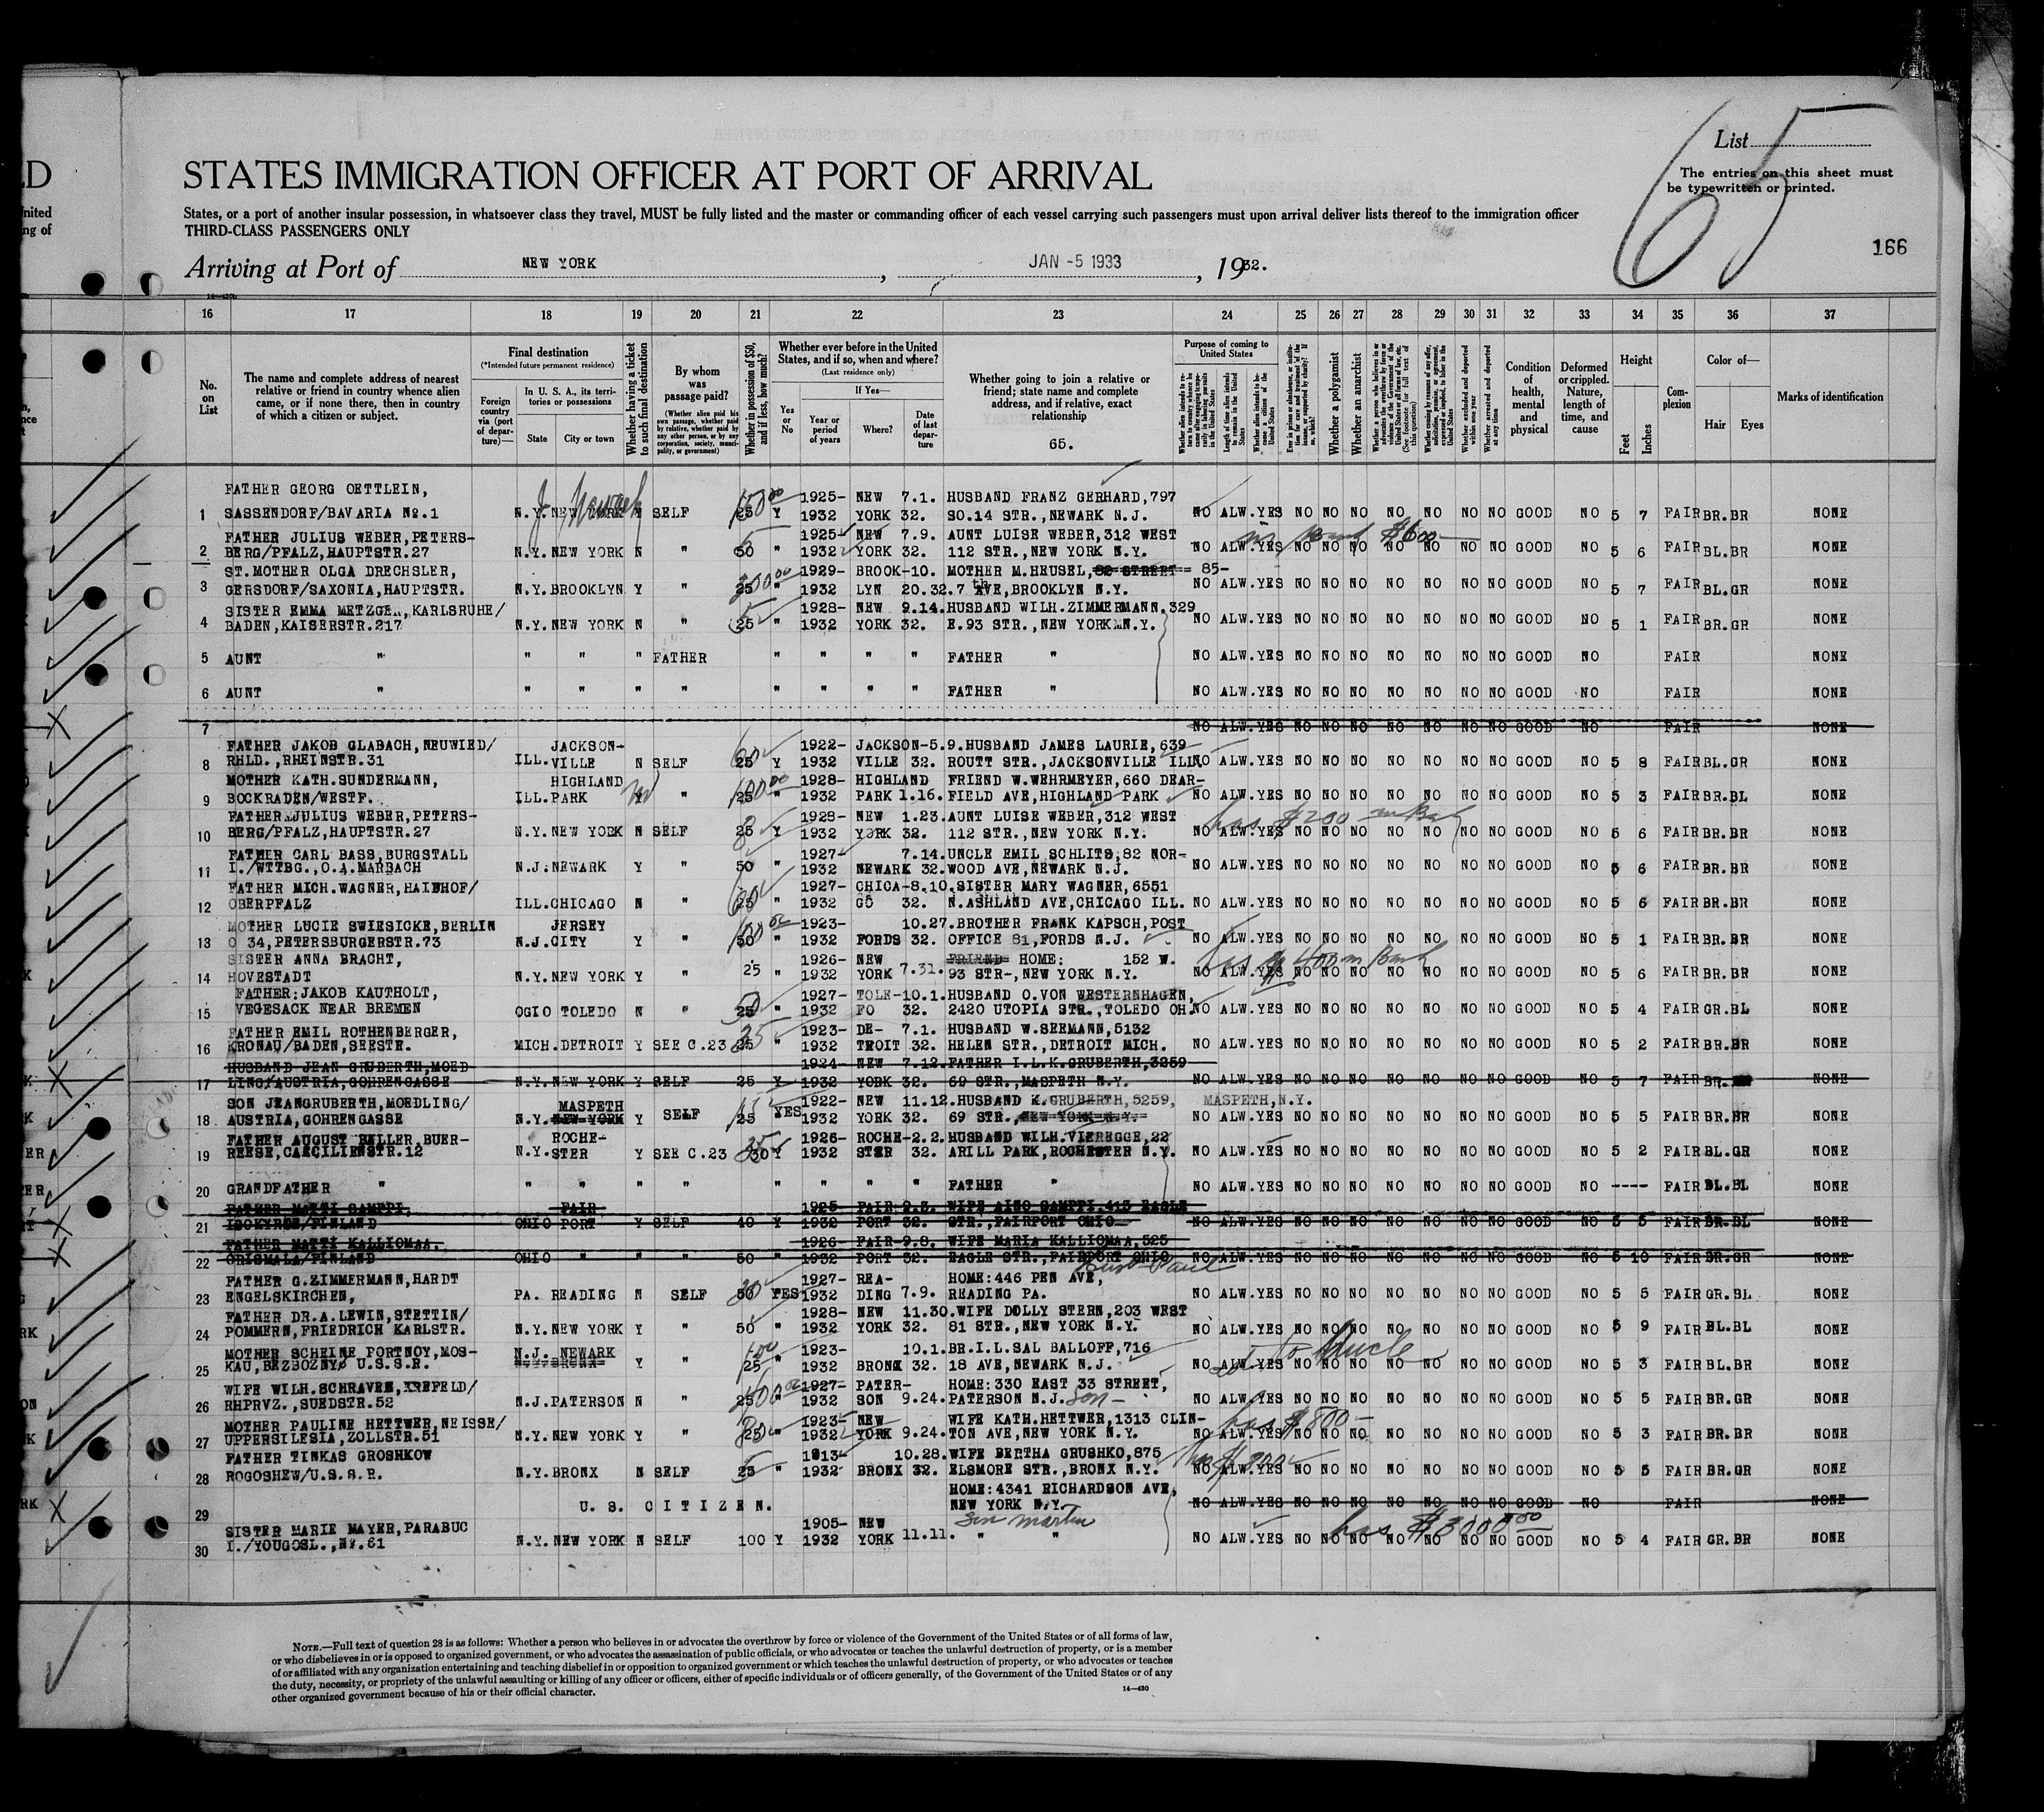 List
65
The entries on this sheet must
be typewritten or printed.
STATES IMMIGRATION OFFICER AT PORT OF ARRIVAL
States, or a port of another insular possession, in whatsoever class they travel, MUST be fully listed and the master or commanding officer of each vessel carrying such passengers must upon arrival deliver lists thereof to the immigration officer
THIRD-CLASS PASSENGERS ONLY
166
Arriving at Port of NEW YORK, JAN -5 1933, 1932.
16 17 18 19 20 21 22 23 24 25 26 27 28 29 30 31 32 33 34 35 36 37
No. on List
The name and complete address of nearest
relative or friend in country whence alien
came, or if none there, then in country
of which a citizen or subject.
Final destination
(*Intended future permanent residence)
Foreign country via (port of departure)—
In U. S. A., its territories or possessions
State
City or town
Whether having a ticket to such final destination
By whom was passage paid?
(Whether alien paid his own passage, whether paid by relative, whether paid by any other person, or by any corporation, society, municipality, or government)
Whether in possession of $50, and if less, how much?
Whether ever before in the United States, and if so, when and where?
(Last residence only)
Yes or No
If Yes—
Year or period of years
Where?
Date of last departure
Whether going to join a relative or
friend; state name and complete
address, and if relative, exact
relationship
65.
Purpose of coming to United States
Whether a polygamist
Whether an anarchist
Whether arrested and deported at any time
Condition of health, mental and physical
Deformed or crippled. Nature, length of time, and cause
Height
Feet
Inches
Complexion
Color of—
Hair
Eyes
Marks of identification
FATHER GEORG OETTLEIN, 1925- NEW 7.1. HUSBAND FRANZ GERHARD,797
1 SASSENDORF/BAVARIA No.1 N.Y. NEW YORK N SELF 25 Y 1932 YORK 32. SO.14 STR.,NEWARK N.J. NO ALW. YES NO NO NO NO NO NO NO GOOD NO 5 7 FAIR BR.BR NONE
J. Newark 150.00
FATHER JULIUS WEBER,PETERS- 1925- NEW 7.9. AUNT LUISE WEBER,312 WEST
2 BERG/PFALZ,HAUPTSTR.27 N.Y. NEW YORK N " 50 " 1932 YORK 32. 112 STR.,NEW YORK N.Y. NO ALW. YES NO NO NO NO NO NO NO GOOD NO 5 6 FAIR BL.BR NONE
$600—
ST.MOTHER OLGA DRECHSLER, 1929- BROOK-10. MOTHER M.HEUSEL,82 STREET 85-
3 GERSDORF/SAXONIA,HAUPTSTR. N.Y. BROOKLYN Y " 25 " 1932 LYN 20.32. 7th AVE,BROOKLYN N.Y. NO ALW. YES NO NO NO NO NO NO NO GOOD NO 5 7 FAIR BL.GR NONE
SISTER EMMA METZGER,KARLSRUHE/ 1928- NEW 9.14. HUSBAND WILH.ZIMMERMANN,329
4 BADEN,KAISERSTR.217 N.Y. NEW YORK N " 25 " 1932 YORK 32. E.93 STR.,NEW YORK N.Y. NO ALW. YES NO NO NO NO NO NO NO GOOD NO 5 1 FAIR BR.GR NONE
5 AUNT " " " " FATHER " " " " FATHER " NO ALW. YES NO NO NO NO NO NO NO GOOD NO FAIR NONE
6 AUNT " " " " " " " " " FATHER " NO ALW. YES NO NO NO NO NO NO NO GOOD NO FAIR NONE
7 NO ALW. YES NO NO NO NO NO NO NO GOOD NO FAIR NONE
FATHER JAKOB GLABACH,NEUWIED/ JACKSON- 1922- JACKSON-5.9. HUSBAND JAMES LAURIE,639
8 RHLD.,RHEINSTR.31 ILL. VILLE N SELF 25 Y 1932 VILLE 32. ROUTT STR.,JACKSONVILLE ILL. NO ALW. YES NO NO NO NO NO NO NO GOOD NO 5 8 FAIR BL.GR NONE
MOTHER KATH.SUNDERMANN, HIGHLAND 1928- HIGHLAND FRIEND W.WEHRMEYER,660 DEAR-
9 BOCKRADEN/WESTF. ILL. PARK " 25 " 1932 PARK 1.16. FIELD AVE,HIGHLAND PARK NO ALW. YES NO NO NO NO NO NO NO GOOD NO 5 3 FAIR BR.BL NONE
FATHER JULIUS WEBER,PETERS- 1928- NEW 1.23. AUNT LUISE WEBER,312 WEST
10 BERG/PFALZ,HAUPTSTR.27 N.Y. NEW YORK N SELF 25 Y 1932 YORK 32. 112 STR.,NEW YORK N.Y. NO ALW. YES NO NO NO NO NO NO NO GOOD NO 5 6 FAIR BR.BR NONE
has $200
FATHER CARL BASS,BURGSTALL 1927- 7.14. UNCLE EMIL SCHLITS,82 NOR-
11 I./WTTBG.,O.A.MARBACH N.J. NEWARK Y " 50 " 1932 NEWARK 32. WOOD AVE,NEWARK N.J. NO ALW. YES NO NO NO NO NO NO NO GOOD NO 5 6 FAIR BR.BR NONE
FATHER MICH.WAGNER,HAIBHOF/ 1927- CHICA-8.10. SISTER MARY WAGNER,6551
12 OBERPFALZ ILL. CHICAGO N " 25 " 1932 GO 32. N.ASHLAND AVE,CHICAGO ILL. NO ALW. YES NO NO NO NO NO NO NO GOOD NO 5 6 FAIR BR.BR NONE
MOTHER LUCIE SWIESICKE,BERLIN JERSEY 1923- 10.27. BROTHER FRANK KAPSCH,POST
13 O 34,PETERSBURGERSTR.73 N.J. CITY Y " 50 " 1932 FORDS 32. OFFICE 81,FORDS N.J. NO ALW. YES NO NO NO NO NO NO NO GOOD NO 5 1 FAIR BR.BR NONE
SISTER ANNA BRACHT, 1926- NEW FRIEND HOME: 152 W.
14 HOVESTADT N.Y. NEW YORK Y " 25 " 1932 YORK 7.31. 93 STR-,NEW YORK N.Y. NO ALW. YES NO NO NO NO NO NO NO GOOD NO 5 6 FAIR BR.BR NONE
has $400 in Bank
FATHER:JAKOB KAUTHOLT, 1927- TOLE-10.1. HUSBAND O.VON WESTERNHAGEN,
15 VEGESACK NEAR BREMEN OGIO TOLEDO N " 25 " 1932 FO 32. 2420 UTOPIA STR.,TOLEDO OH. NO ALW. YES NO NO NO NO NO NO NO GOOD NO 5 4 FAIR GR.BL NONE
FATHER EMIL ROTHENBERGER, 1923- DE- 7.1. HUSBAND W.SEEMANN,5132
16 KRONAU/BADEN,SEESTR. MICH. DETROIT Y SEE C.23 25 " 1932 TROIT 32. HELEN STR.,DETROIT MICH. NO ALW. YES NO NO NO NO NO NO NO GOOD NO 5 2 FAIR BR.BR NONE
HUSBAND JEAN GRUBERTH,MOED 1924- NEW 7.12. FATHER I.L.K.GRUBERTH,3259
17 LING/AUSTRIA,GOHRENGASSE N.Y. NEW YORK Y SELF 25 Y 1932 YORK 32. 69 STR.,MASPETH N.Y. NO ALW. YES NO NO NO NO NO NO NO GOOD NO 5 7 FAIR BR. NONE
SON JEANGRUBERTH,MOEDLING/ MASPETH 1922- NEW 11.12. HUSBAND K.GRUBERTH,5259, MASPETH,N.Y.
18 AUSTRIA,GOHRENGASSE N.Y. NEW YORK Y SELF 25 YES 1932 YORK 32. 69 STR.,NEW YORK N.Y. NO ALW. YES NO NO NO NO NO NO NO GOOD NO 5 5 FAIR BR.BR NONE
FATHER AUGUST BILLER,BUER- ROCHE- 1926- ROCHE-2.2. HUSBAND WILH.VIEREGGE,22
19 REESE,CAECILIENSTR.12 N.Y. STER Y SEE C.23 Y 1932 STER 32. ARILL PARK,ROCHESTER N.Y. NO ALW. YES NO NO NO NO NO NO NO GOOD NO 5 2 FAIR BL.GR NONE
20 GRANDFATHER " " " " " " " " " FATHER " NO ALW. YES NO NO NO NO NO NO NO GOOD NO ---- FAIR BL.BL NONE
FATHER MATTI SAMPPI, FAIR 1925- FAIR 9.8. WIFE AINO SAMPPI,413 EAGLE
21 ISOKYROE/FINLAND OHIO PORT Y SELF 40 Y 1932 PORT 32. STR.,FAIRPORT OHIO NO ALW. YES NO NO NO NO NO NO NO GOOD NO 5 5 FAIR BR.BL NONE
FATHER MATTI KALLIOMAA. 1926- FAIR 9.8. WIFE MARIA KALLIOMAA,525
22 ORISMALA/FINLAND OHIO " " " 50 " 1932 PORT 32. EAGLE STR.,FAIRPORT OHIO NO ALW. YES NO NO NO NO NO NO NO GOOD NO 5 10 FAIR BR.GR NONE
FATHER G.ZIMMERMANN,HARDT 1927- REA- HOME:446 PEN AVE,
23 ENGELSKIRCHEN, PA. READING N SELF 50 YES 1932 DING 7.9. READING PA. NO ALW. YES NO NO NO NO NO NO NO GOOD NO 5 5 FAIR GR.BL NONE
FATHER DR.A.LEWIN,STETTIN/ 1928- NEW 11.30. WIFE DOLLY STERN,203 WEST
24 POMMERN,FRIEDRICH KARLSTR. N.Y. NEW YORK Y " 50 " 1932 YORK 32. 81 STR.,NEW YORK N.Y. NO ALW. YES NO NO NO NO NO NO NO GOOD NO 5 9 FAIR BL.BL NONE
MOTHER SCHEINE PORTNOY,MOS- N.J. NEWARK 1923- 10.1. BR.I.L.SAL BALLOFF,716
25 KAU,BEZBOZNY U.S.S.R. N.Y. BRONX Y " 25 " 1932 BRONX 32. 18 AVE,NEWARK N.J. NO ALW. YES NO NO NO NO NO NO NO GOOD NO 5 3 FAIR BL.BR NONE
to Uncle
WIFE WILH.SCHRAVEN,KREFELD/ 1927- PATER- HOME:330 EAST 33 STREET,
26 RHPRVZ.,SUEDSTR.52 N.J. PATERSON N " 25 " 1932 SON 9.24. PATERSON N.J. Son— NO ALW. YES NO NO NO NO NO NO NO GOOD NO 5 5 FAIR BR.GR NONE
MOTHER PAULINE HETTWER,NEISSE/ 1923- NEW WIFE KATH.HETTWER,1313 CLIN-
27 UPPERSILESIA,ZOLLSTR.51 N.Y. NEW YORK Y " 25 " 1932 YORK 9.24. TON AVE,NEW YORK N.Y. NO ALW. YES NO NO NO NO NO NO NO GOOD NO 5 3 FAIR BR.BR NONE
has $800—
FATHER TINKAS GROSHKOW 1913- 10.28. WIFE BERTHA GRUSHKO,875
28 ROGOSHEW/U.S.S.R. N.Y. BRONX N SELF 25 " 1932 BRONX 32. ELSMORE STR.,BRONX N.Y. NO ALW. YES NO NO NO NO NO NO NO GOOD NO 5 5 FAIR BR.GR NONE
HOME:4341 RICHARDSON AVE,
29 U.S. CITIZEN. NEW YORK N.Y. NO ALW. YES NO NO NO NO NO NO NO GOOD NO FAIR NONE
son Martin
SISTER MARIE MAYER,PARABUC 1905- NEW
30 I./YOUGOSL.,No.61 N.Y. NEW YORK N SELF 100 Y 1932 YORK 11.11. " " NO ALW. YES NO NO NO NO NO NO NO GOOD NO 5 4 FAIR GR.BR NONE
has $3000.00
NOTE.—Full text of question 28 is as follows: Whether a person who believes in or advocates the overthrow by force or violence of the Government of the United States or of all forms of law,
or who disbelieves in or is opposed to organized government, or who advocates the assassination of public officials, or who advocates or teaches the unlawful destruction of property, or is a member
of or affiliated with any organization entertaining and teaching disbelief in or opposition to organized government or which teaches the unlawful destruction of property, or who advocates or teaches
the duty, necessity, or propriety of the unlawful assaulting or killing of any officer or officers, either of specific individuals or of officers generally, of the Government of the United States or of any
other organized government because of his or their official character.
14—430